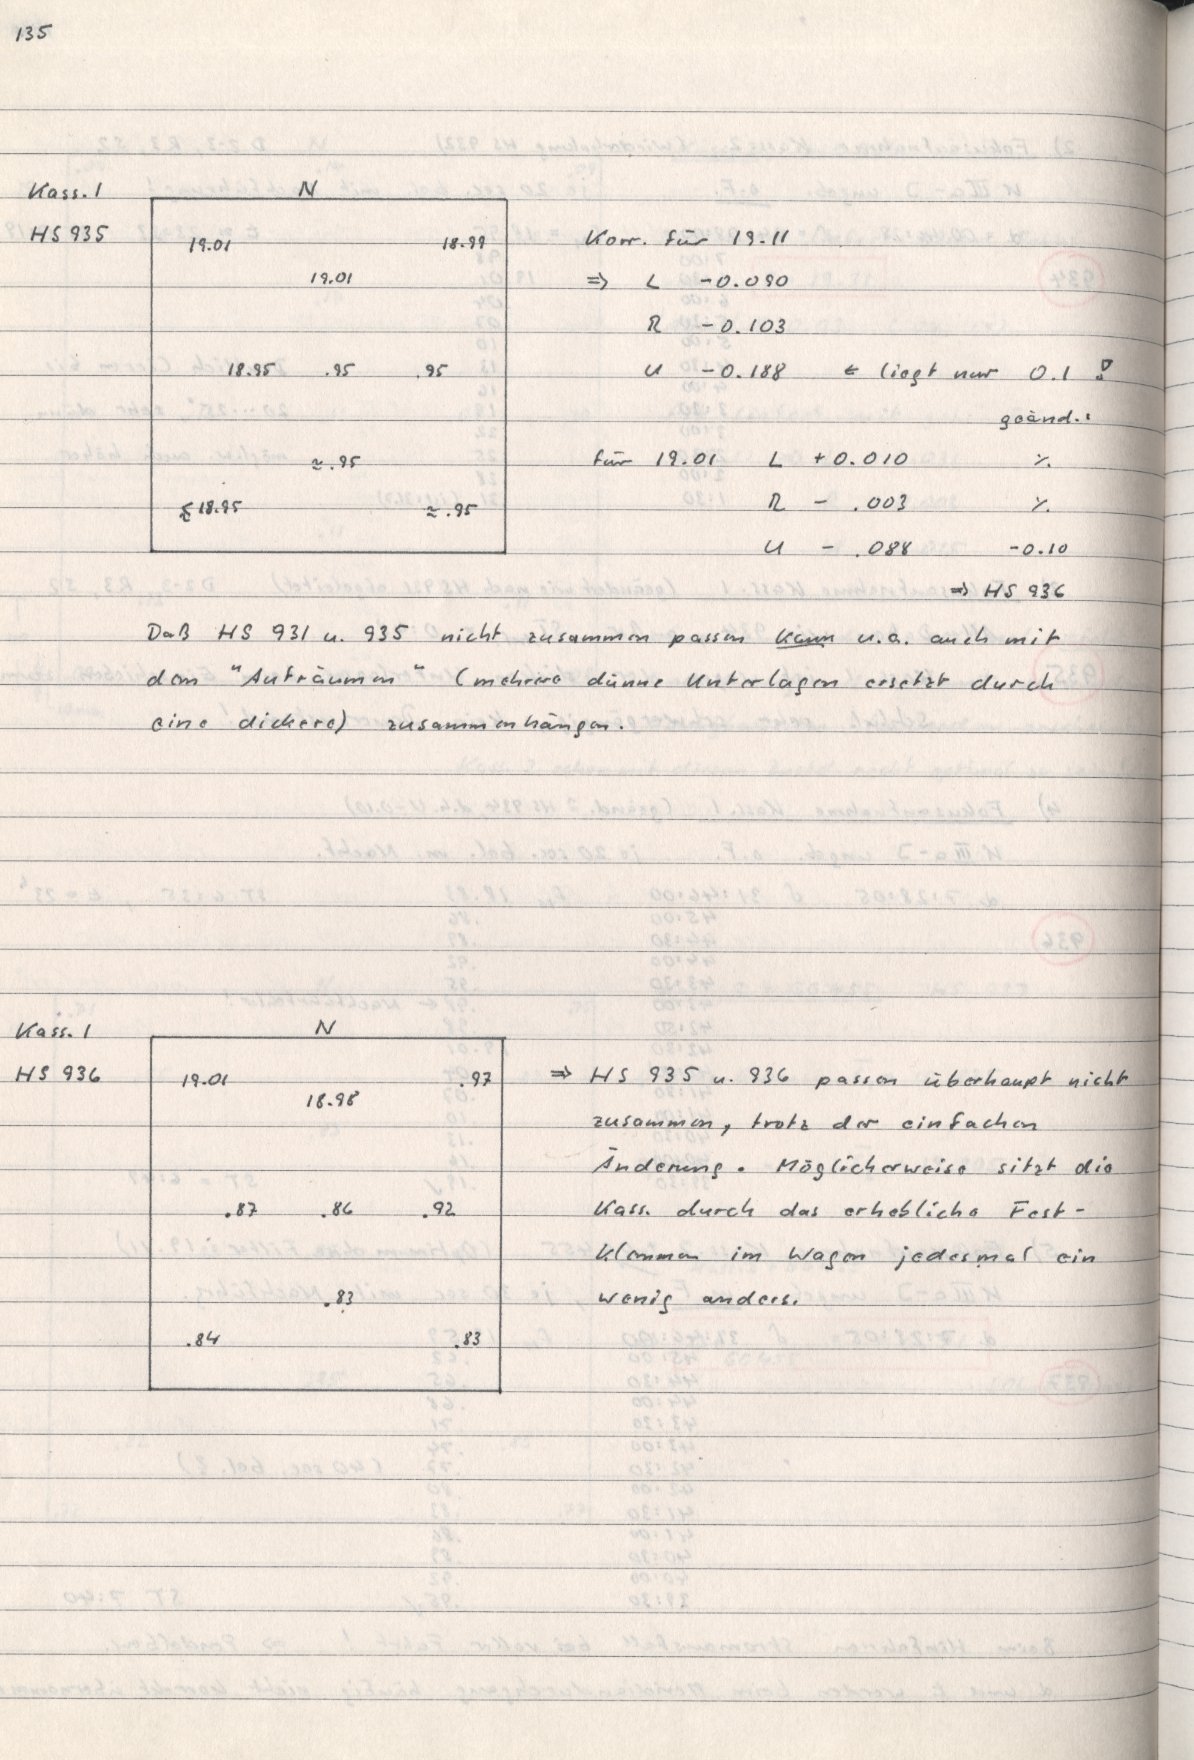 135
Kass. 1 N
HS 935
19.01 18.99
19.01
18.95 .95 .95
≈ .95
≲ 18.95 ≈ .95
Korr. für 19.11
⇒ L -0.090
R -0.103
U -0.188 ← liegt nur 0.1 !
geänd.:
für 19.01 L +0.010 ٪.
R - .003 ٪.
U - .088 -0.10
⇒ HS 936
Daß HS 931 u. 935 nicht zusammen passen kann u.a. auch mit
dem "Aufräumen" (mehrere dünne Unterlagen ersetzt durch
eine dickere) zusammenhängen.
Kass. 1 N
HS 936
19.01 .97
18.98
.87 .86 .92
.83
.84 .83
⇒ HS 935 u. 936 passen überhaupt nicht
zusammen, trotz der einfachen
Änderung. Möglicherweise sitzt die
Kass. durch das erhebliche Fest-
klemmen im Wagen jedesmal ein
wenig anders.